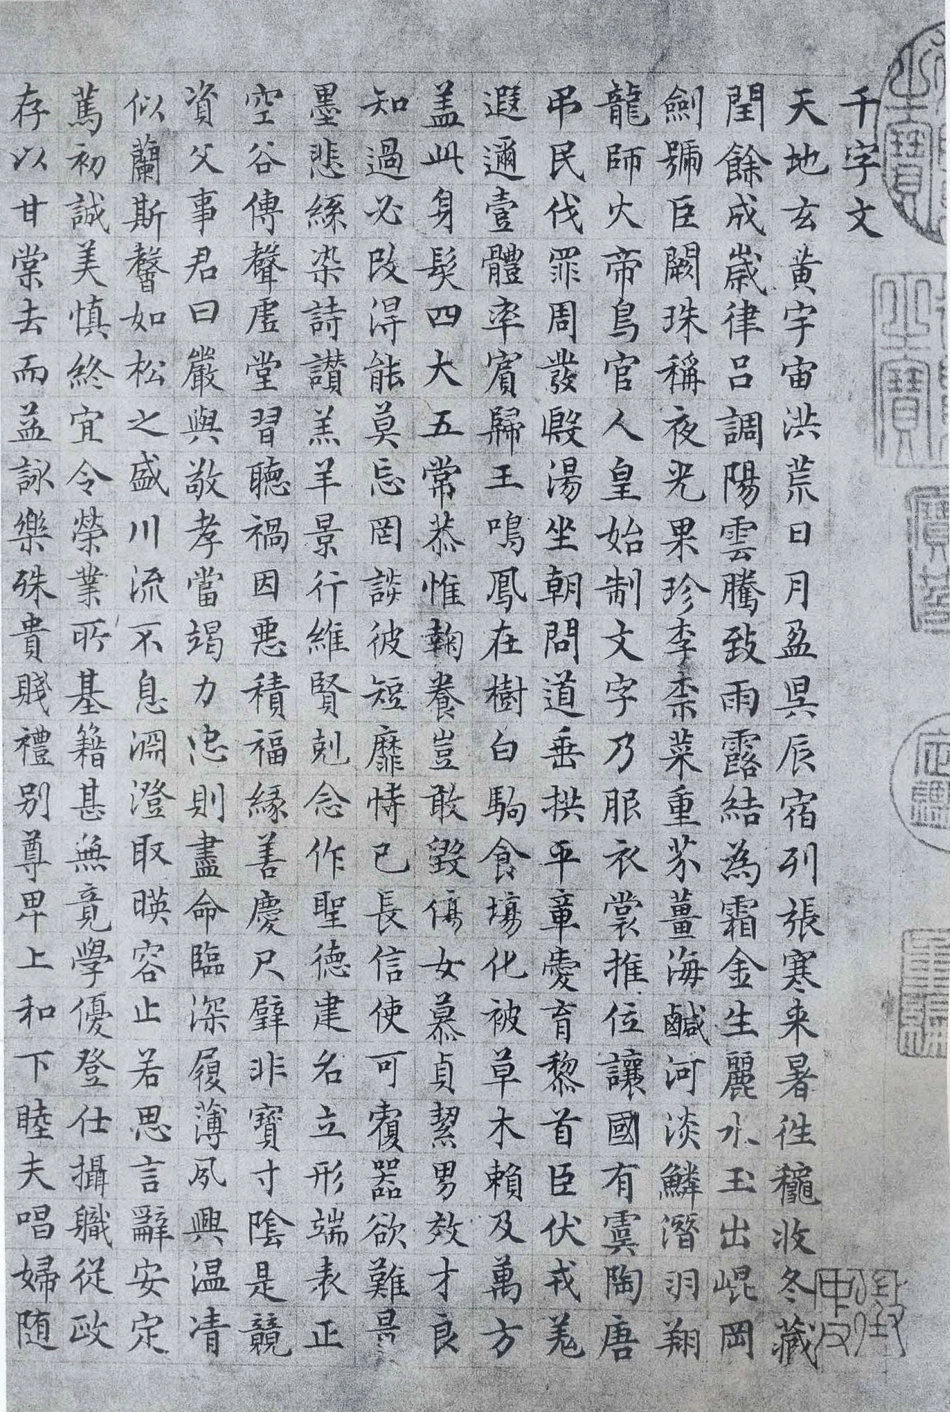 千字文
天地玄黄宇宙洪荒日月盈昃辰宿列張寒来暑往穐收冬藏
閏餘成歲律呂調陽雲騰致雨露結為霜金生麗水玉出崐岡
劍號巨闕珠稱夜光果珍李柰菜重芥薑海鹹河淡鱗潛羽翔
龍師火帝鳥官人皇始制文字乃服衣裳推位讓國有虞陶唐
吊民伐罪周發殷湯坐朝問道垂拱平章愛育黎首臣伏戎羌
遐邇壹體率賓歸王鳴鳳在樹白駒食場化被草木賴及萬方
盖此身髮四大五常恭惟鞠養豈敢毀傷女慕貞絜男效才良
知過必改得能莫忘罔談彼短靡恃己長信使可覆器欲難量
墨悲絲染詩讃羔羊景行維賢剋念作聖德建名立形端表正
空谷傳聲虛堂習聽禍因悪積福緣善慶尺璧非寶寸陰是競
資父事君曰嚴與敬孝當竭力忠則盡命臨深履薄夙興温凊
似蘭斯馨如松之盛川流不息淵澄取暎容止若思言辭安定
篤初誠美慎終宜令榮業所基籍甚無竟學優登仕攝職從政
存以甘棠去而益詠樂殊貴賤禮別尊卑上和下睦夫唱婦随